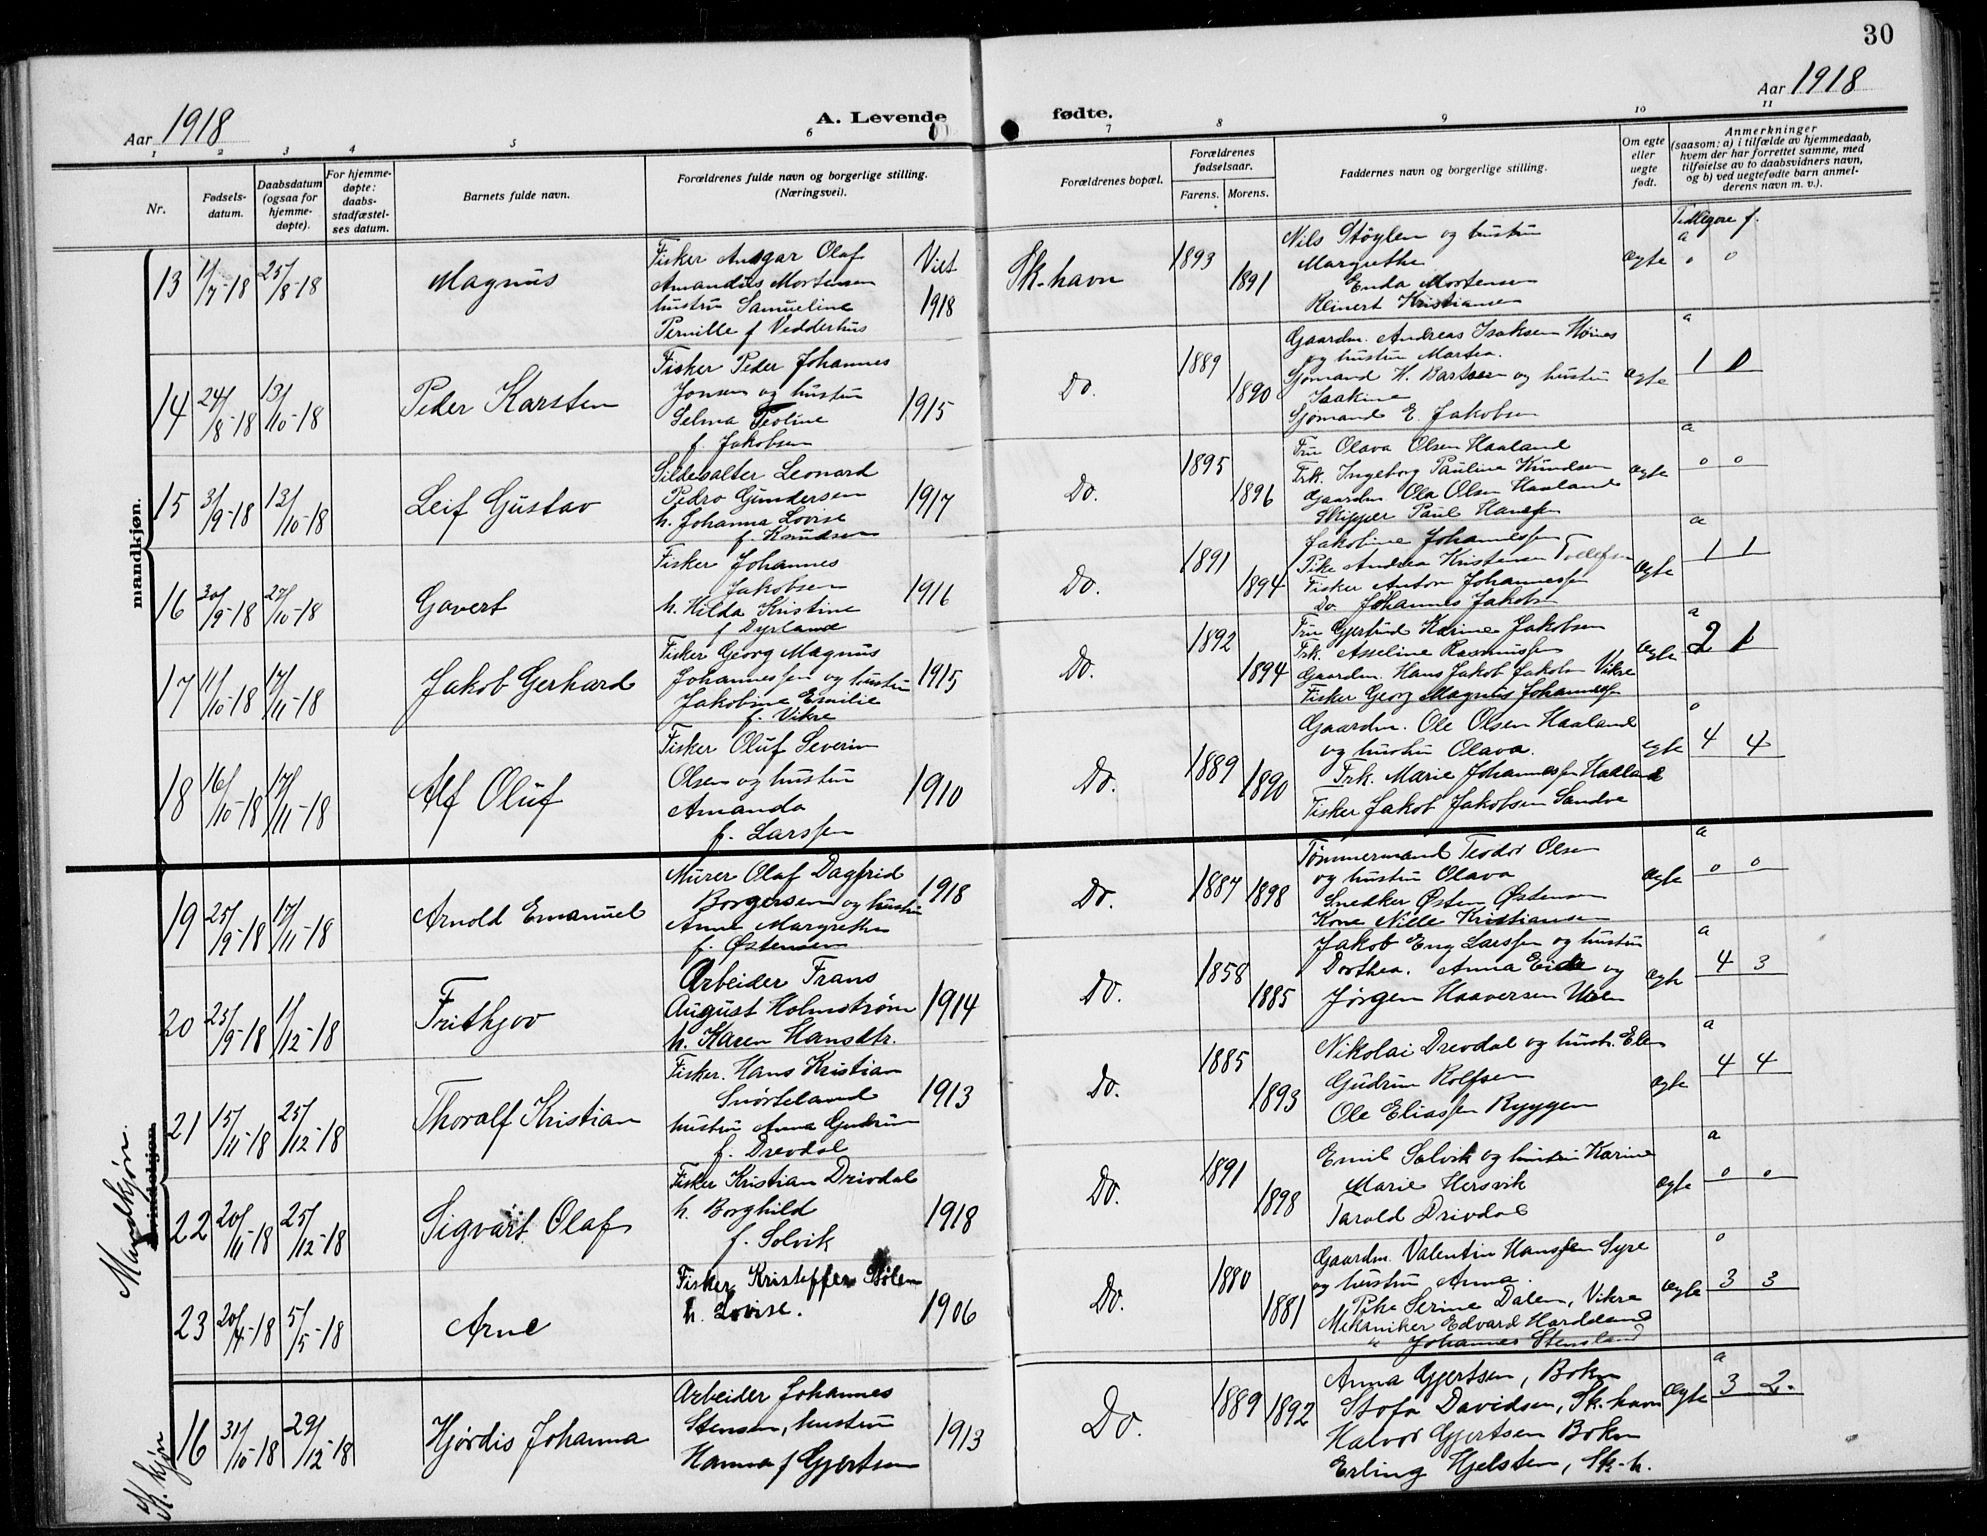 30
Aar 1918
A. Levende fødte.
Aar 1918
1 2 3 4 5 6 7 8 9 10 11
Nr.
Fødsels-
datum.
Daabsdatum
(ogsaa for
hjemme-
døpte).
For hjemme-
døpte:
daabs-
stadfæstel-
ses datum.
Barnets fulde navn.
Forældrenes fulde navn og borgerlige stilling.
(Næringsvei).
Forældrenes bopæl.
Forældrenes
fødselsaar.
Farens. Morens.
Faddernes navn og borgerlige stilling.
Om egte
eller
uegte
født.
Anmerkninger
(saasom: a) i tilfælde av hjemmedaab,
hvem der har forrettet samme, med
tilføielse av to daabsvidners navn,
og b) ved uegtefødte barn anmel-
derens navn m. v.).
mandkjøn.
Tidligere f.
13 11/7-18 25/8-18 Magnus
Fisker Ansgar Olaf
Amandus Mortensen
hustru Samueline
Pernille f Vedderhus
Viet
1918
Sk.havn 1893 1891
Nils Støylen og hustru
Margrethe
Enda Mortensen
Reinert Kristiansen
ægte a 0 0
14 24/8-18 13/10-18 Peder Karsten
Fisker Peder Johannes
Jonsen og hustru
Selma Teoline
f. Jakobsen
1915
Do. 1889 1890
Gaardm. Andreas Isaksen Høines
og hustru Martea.
Sjømand H. Bartsen og hustru
Isakine
Sjømand E. Jakobsen
ægte a 1 0
15 3/9-18 13/10-18 Leif Gustav
Sildesalter Leonard
Pedro Gundersen
h. Johanna Lovise
f. Knudsen
1917
Do. 1895 1896
Fru Olava Olsen Haaland
Frk. Ingeborg Pauline Knudsen
Gaardm. Ola Olsen Haaland
Skipper Paul Hansen
ægte a 0 0
16 30/9-18 27/10-18 Govert
Fisker Johannes
Jakobsen
h. Hilda Kristine
f Dyrland
1916
Do. 1891 1894
Jakobine Johannessen
Pike Andrea Kristensen Tollefsen
Fisker Anton Johannessen
Do Johannes Jakobsen
ægte a 1 1
17 11/10-18 17/11-18 Jakob Gerhard
Fisker Georg Magnus
Johannessen og hustru
Jakobine Emilie
f. Vikre
1915
Do. 1892 1894
Fru Gjertrud Karine Jakobsen
Frk. Asseline Rasmussen
Gaardm. Hans Jakob Jakobsen Vikre
Fisker Georg Magnus Johannessen
ægte a 2 1
18 16/10-18 17/11-18 Alf Oluf
Fisker Oluf Severin
Olsen og hustru
Amanda
f. Larssen
1910
Do. 1889 1890
Gaardm. Ole Olsen Haaland
og hustru Olava.
Frk. Marie Johannessen Haaland
Fisker Jakob Jakobsen Sandve
egte a 4 4
Mandkjøn.
19 25/9-18 17/11-18 Arnold Emanuel
Murer Olaf Dagfrid
Borgersen og hustru
Anna Margrethe
f. Østensen
1918
Do. 1887 1898
Tømmermand Teodor Olsen
og hustru Olava
Snedker Østen Østensen
Kone Nille Kristiansen
ægte a 0 0
20 23/9-18 1/12-18 Frithjov
Arbeider Frans
August Holmstrøm
h. Karen Hansdtr.
1914
Do. 1858 1885
Jakob Eng Larssen og hustru
Dorthea. Anna Eide og
Jørgen Haaversen
ægte a 4 3
21 15/11-18 25/12-18 Thoralf Kristian
Fisker. Hans Kristian
Snørteland
hustru Anna Gudrun
f. Drevdal
1913
Do. 1885 1893
Nikolai Drevdal og hustr. Elen
Gudrun Rolfsen
Ole Eliassen Ryggen
ægte a 4 4
22 20/11-18 25/12-18 Sigvart Olaf
Fisker Kristian Drivdal
h. Borghild
f. Solvik
1918
Do. 1891 1898
Emil Solvik og hustru Karine
Marie Hersvik
Tarald Drivdal
ægte a 0 0
23 20/4-18 5/5-18 Arne
Fisker Kristoffer Stølen
h. Lovise.
1906
Do. 1880 1881
Gaardm. Valentin Hanssen Syre
og hustru Anna.
Pike Serine Dalen, Vikre
Mekaniker Edvard Harddeland
" Johannes Stensland
ægte a 3 3
K. kjøn
16 31/10-18 29/12-18 Hjørdis Johanna
Arbeider Johannes
Stensen, hustru
Hanna f Gjertsen
1913
Do. 1889 1892
Anna Gjertsen, Bokn
Stofa Davidsen, Sk.havn
Halvor Gjertsen Bokn
Erling Hjelsten, Sk.h.
ægte a 3 2.